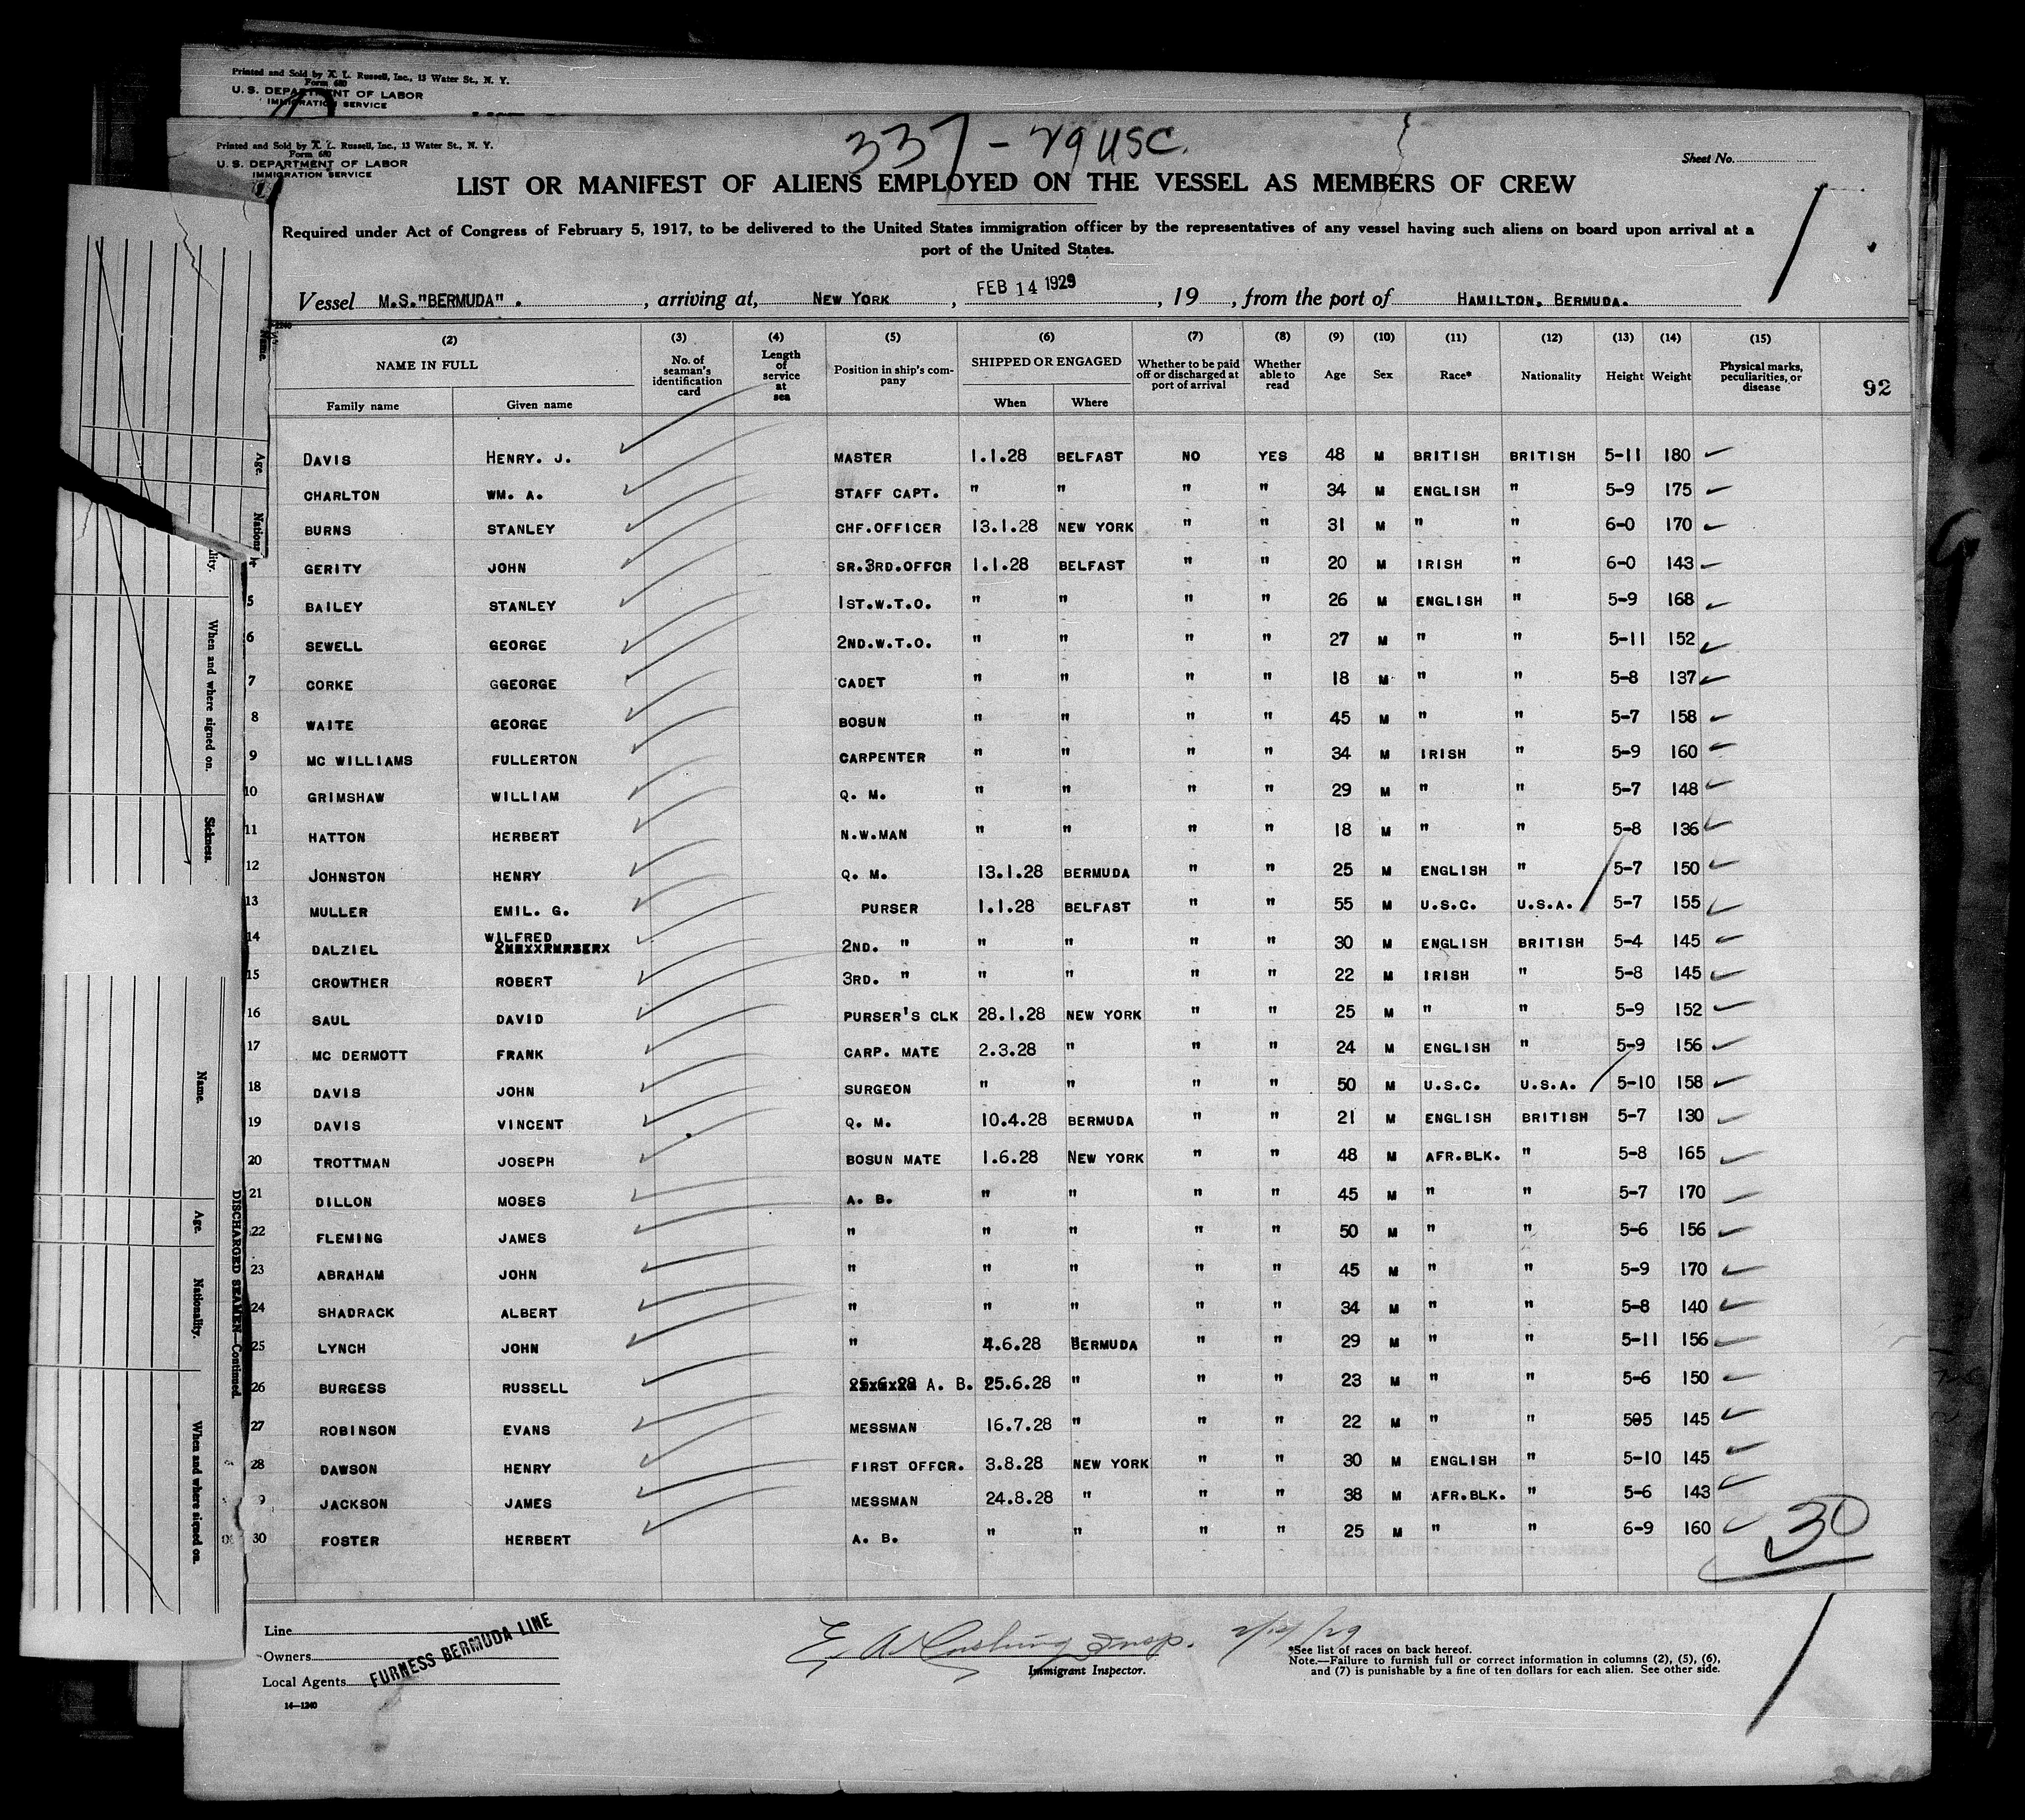 Printed and Sold by X. L. Russell, Inc., 13 Water St., N. Y.
Form 680
U. S. DEPARTMENT OF LABOR
IMMIGRATION SERVICE
Printed and Sold by X. L. Russell, Inc., 13 Water St., N. Y.
Form 680
U. S. DEPARTMENT OF LABOR
IMMIGRATION SERVICE
337 - 29 USC.
Sheet No.
LIST OR MANIFEST OF ALIENS EMPLOYED ON THE VESSEL AS MEMBERS OF CREW
Required under Act of Congress of February 5, 1917, to be delivered to the United States immigration officer by the representatives of any vessel having such aliens on board upon arrival at a
port of the United States.
Vessel M.S."BERMUDA". , arriving at, NEW YORK , FEB 14 1929 , 19 , from the port of HAMILTON, BERMUDA.
(2) (3) (4) (5) (6) (7) (8) (9) (10) (11) (12) (13) (14) (15)
NAME IN FULL No. of seaman's identification card Length of service at sea Position in ship's company SHIPPED OR ENGAGED Whether to be paid off or discharged at port of arrival Whether able to read Age Sex Race* Nationality Height Weight Physical marks, peculiarities, or disease 92
Family name Given name When Where
DAVIS HENRY. J. MASTER 1.1.28 BELFAST NO YES 48 M BRITISH BRITISH 5-11 180
CHARLTON WM. A. STAFF CAPT. " " " " 34 M ENGLISH " 5-9 175
BURNS STANLEY CHF.OFFICER 13.1.28 NEW YORK " " 31 M " " 6-0 170
GERITY JOHN SR.3RD.OFFCR 1.1.28 BELFAST " " 20 M IRISH " 6-0 143
5 BAILEY STANLEY 1ST.W.T.O. " " " " 26 M ENGLISH " 5-9 168
6 SEWELL GEORGE 2ND.W.T.O. " " " " 27 M " " 5-11 152
7 CORKE GGEORGE CADET " " " " 18 M " " 5-8 137
8 WAITE GEORGE BOSUN " " " " 45 M " " 5-7 158
9 MC WILLIAMS FULLERTON CARPENTER " " " " 34 M IRISH " 5-9 160
10 GRIMSHAW WILLIAM Q. M. " " " " 29 M " " 5-7 148
11 HATTON HERBERT N.W.MAN " " " " 18 M " " 5-8 136
12 JOHNSTON HENRY Q. M. 13.1.28 BERMUDA " " 25 M ENGLISH " 5-7 150
13 MULLER EMIL. G. PURSER 1.1.28 BELFAST " " 55 M U.S.C. U.S.A. 5-7 155
14 DALZIEL WILFRED 2ND. " " " " " 30 M ENGLISH BRITISH 5-4 145
15 CROWTHER ROBERT 3RD. " " " " " 22 M IRISH " 5-8 145
16 SAUL DAVID PURSER'S CLK 28.1.28 NEW YORK " " 25 M " " 5-9 152
17 MC DERMOTT FRANK CARP. MATE 2.3.28 " " " 24 M ENGLISH " 5-9 156
18 DAVIS JOHN SURGEON " " " " 50 M U.S.C. U.S.A. 5-10 158
19 DAVIS VINCENT Q. M. 10.4.28 BERMUDA " " 21 M ENGLISH BRITISH 5-7 130
20 TROTTMAN JOSEPH BOSUN MATE 1.6.28 NEW YORK " " 48 M AFR.BLK. " 5-8 165
21 DILLON MOSES A. B. " " " " 45 M " " 5-7 170
22 FLEMING JAMES " " " " " 50 M " " 5-6 156
23 ABRAHAM JOHN " " " " " 45 M " " 5-9 170
24 SHADRACK ALBERT " " " " " 34 M " " 5-8 140
25 LYNCH JOHN " 4.6.28 BERMUDA " " 29 M " " 5-11 156
26 BURGESS RUSSELL A. B. 25.6.28 " " " 23 M " " 5-6 150
27 ROBINSON EVANS MESSMAN 16.7.28 " " " 22 M " " 505 145
28 DAWSON HENRY FIRST OFFCR. 3.8.28 NEW YORK " " 30 M ENGLISH " 5-10 145
9 JACKSON JAMES MESSMAN 24.8.28 " " " 38 M AFR.BLK. " 5-6 143
30 FOSTER HERBERT A. B. " " " " 25 M " " 6-9 160
30
Line
Owners
Local Agents
FURNESS BERMUDA LINE
14—1240
E. A. Cushing Insp.
Immigrant Inspector.
*See list of races on back hereof.
Note.—Failure to furnish full or correct information in columns (2), (5), (6),
and (7) is punishable by a fine of ten dollars for each alien. See other side.
Name.
Age.
When and where signed on.
Sickness.
DISCHARGED SEAMEN—Continued.
Name.
Age.
Nationality.
When and where signed on.